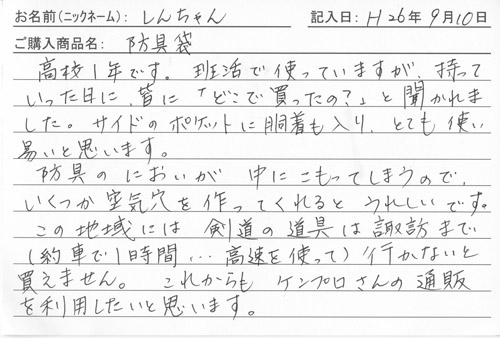 お名前(ニックネーム): しんちゃん 記入日: H26年9月10日
ご購入商品名: 防具袋
高校1年です。班活で使っていますが、持って
いった日に、皆に「どこで買ったの?」と聞かれま
した。サイドのポケットに胴着も入り、とても使い
易いと思います。
防具のにおいが中にこもってしまうので、
いくつか空気穴を作ってくれるとうれしいです。
この地域には剣道の道具は諏訪まで
(約車で1時間…高速を使って)行かないと
買えません。これからもケンプロさんの通販
を利用したいと思います。